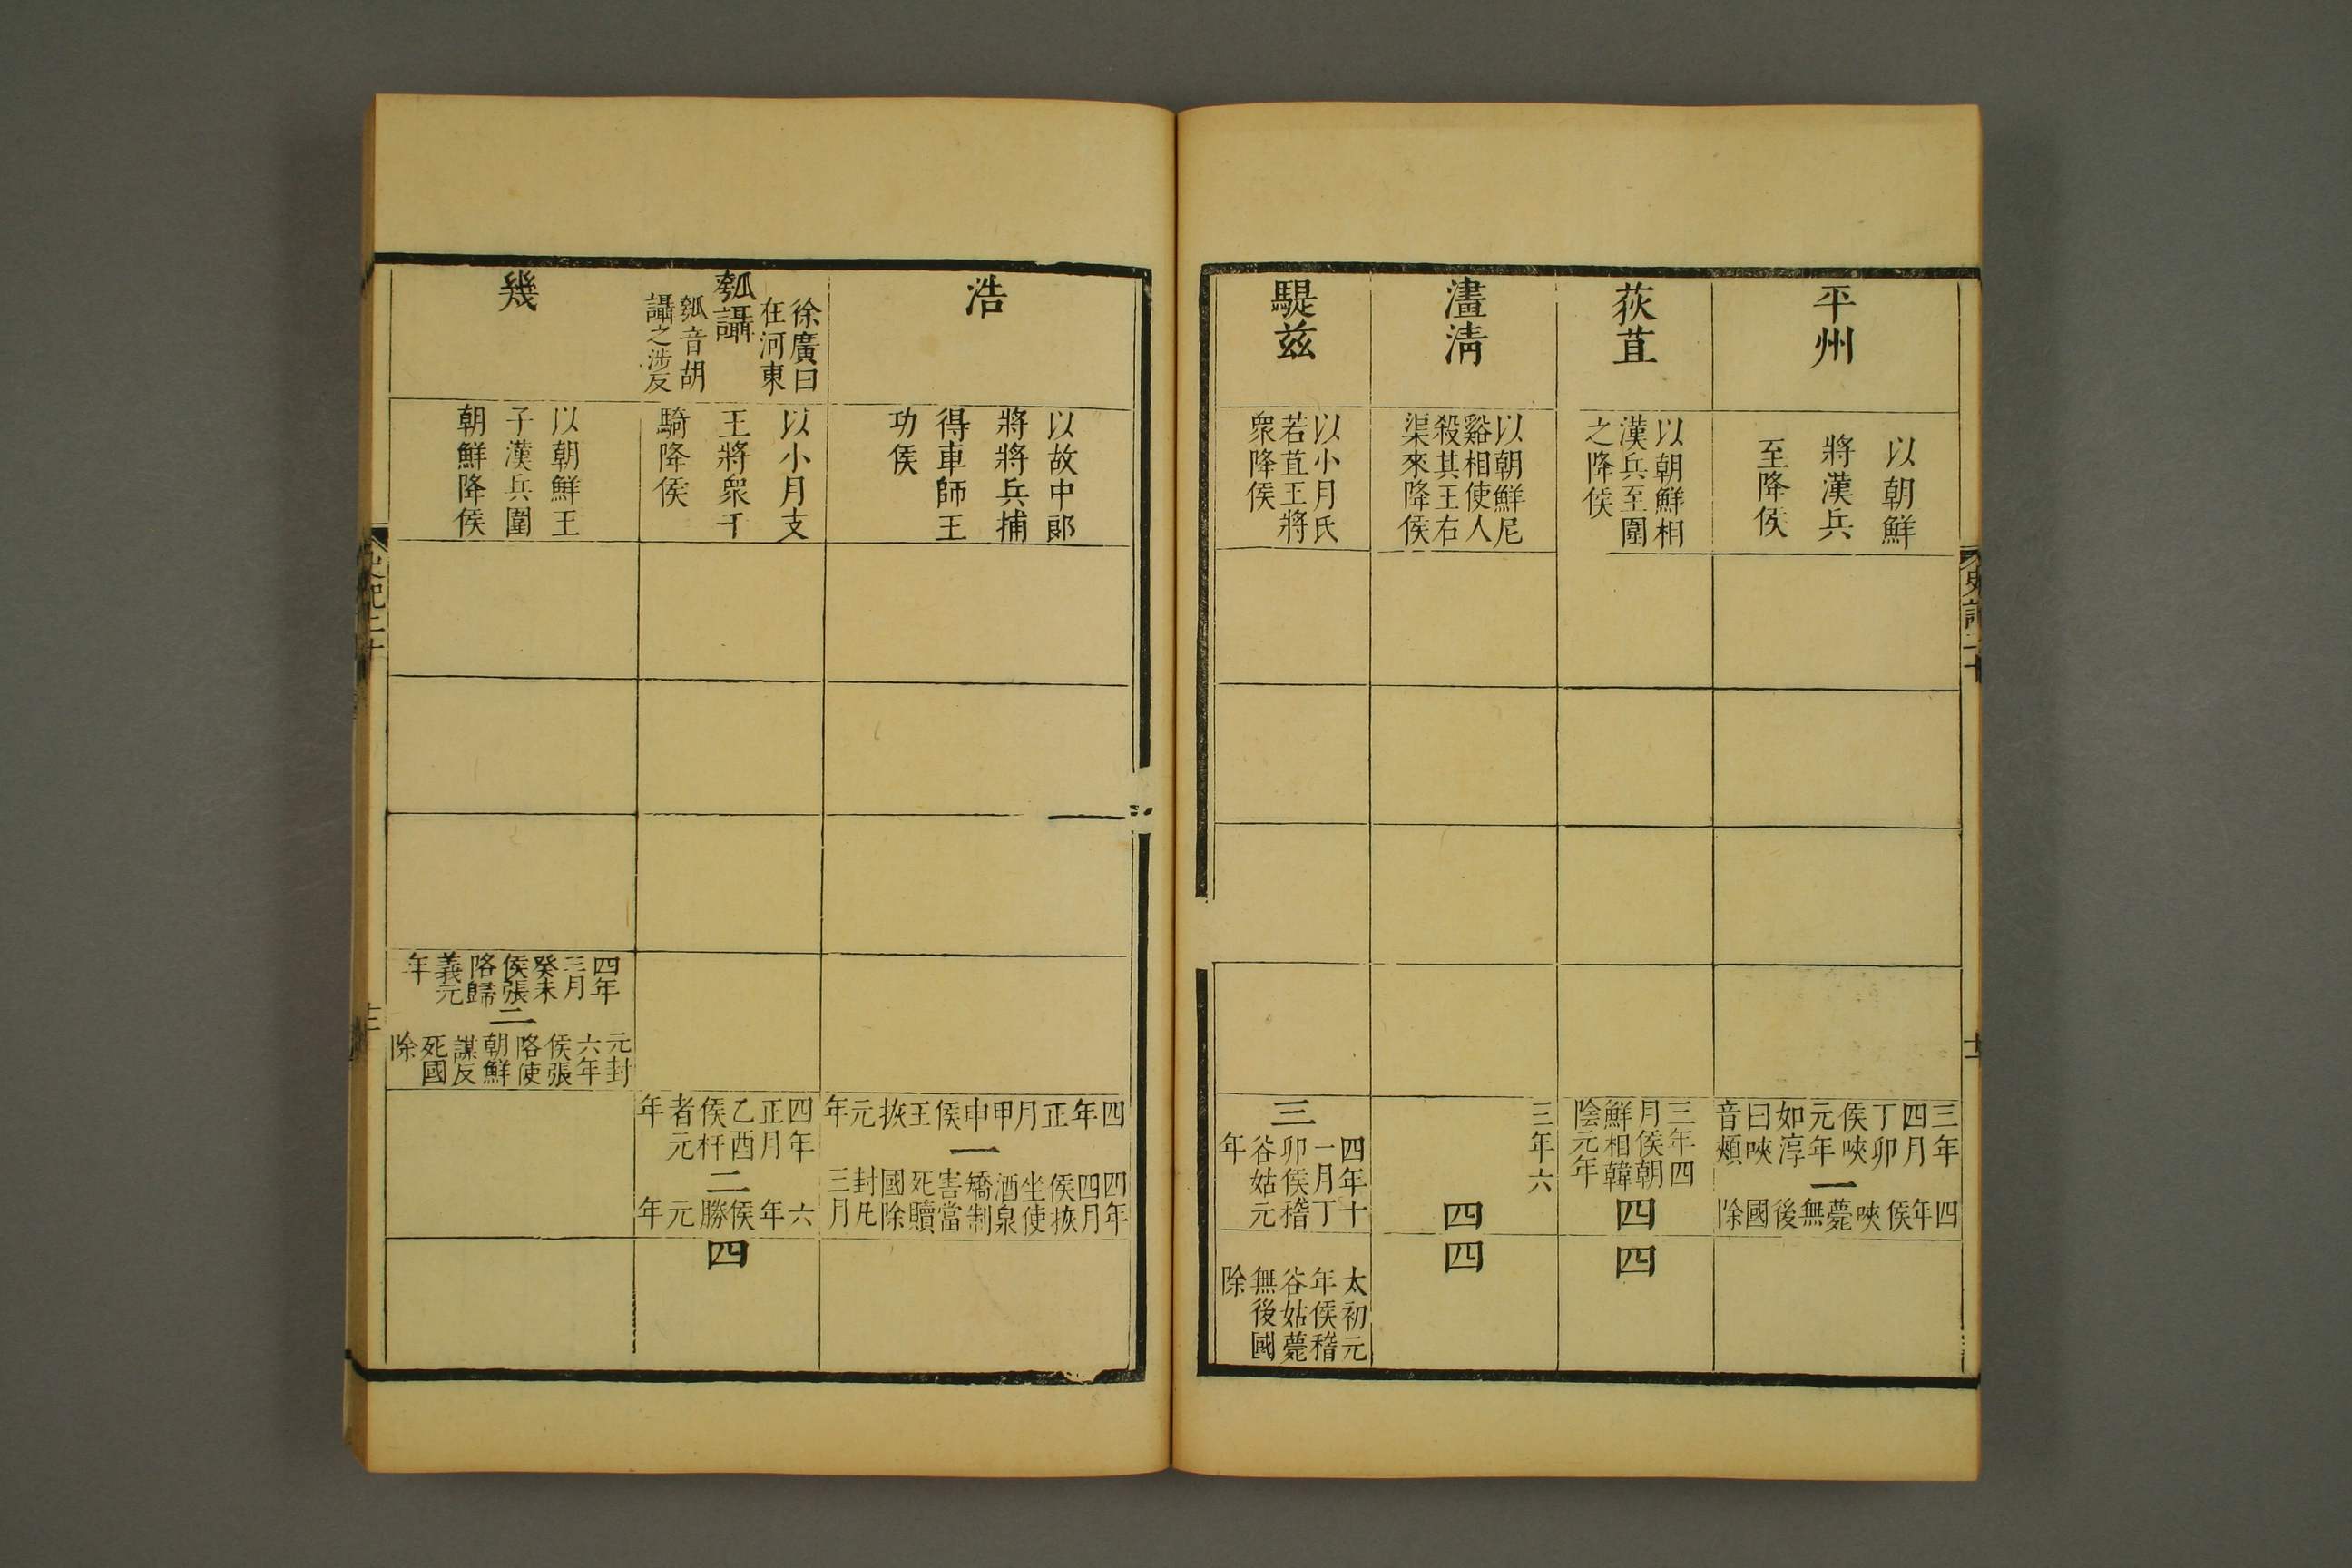 平州
以朝鮮
將漢兵
至降侯
三年
四月
丁卯
侯唊
元年
如淳
曰唊
音頰
一
四年侯唊薨無後國除
荻苴
以朝鮮相
漢兵至圍
之降侯
三年四
月侯朝
鮮相韓
陰元年
四
四
澅清
以朝鮮尼
谿相使人
殺其王右
渠來降侯
三年六
四
四
騠兹
以小月氏
若苴王將
衆降侯
三
四年十
一月丁
卯侯稽
谷姑元
年
太初元
年侯稽
谷姑薨
無後國
除
浩
以故中郎
將將兵捕
得車師王
功侯
四年正月甲申侯王恢元年
一
四年
四月
侯恢
坐使
酒泉
矯制
害當
死贖
國除
封凡
三月
瓡讘
徐廣曰
在河東
瓡音胡
讘之涉反
以小月支
王將衆千
騎降侯
四年
正月
乙酉
侯杆
者元
年
二
六年侯勝元年
四
幾
以朝鮮王
子漢兵圍
朝鮮降侯
四年
三月
癸未
侯張
𨸯歸
義元
年
二
元封
六年
侯張
𨸯使
朝鮮
謀反
死國
除
史記二十